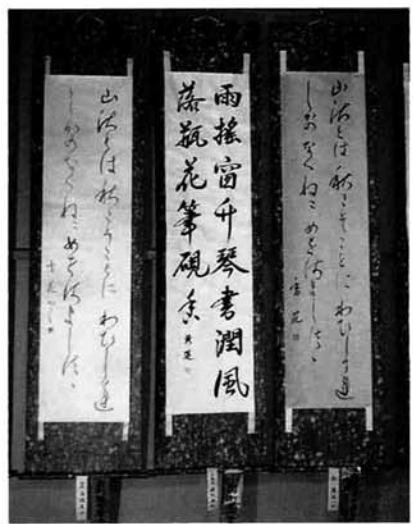 山さとは秋こそことにわひしけれ
しかのなくねにめをさましつゝ
雨搖窗竹琴書潤風
落瓶花筆硯香
山さとは秋こそことにわひしけれ
しかのなくねにめをさましつゝ